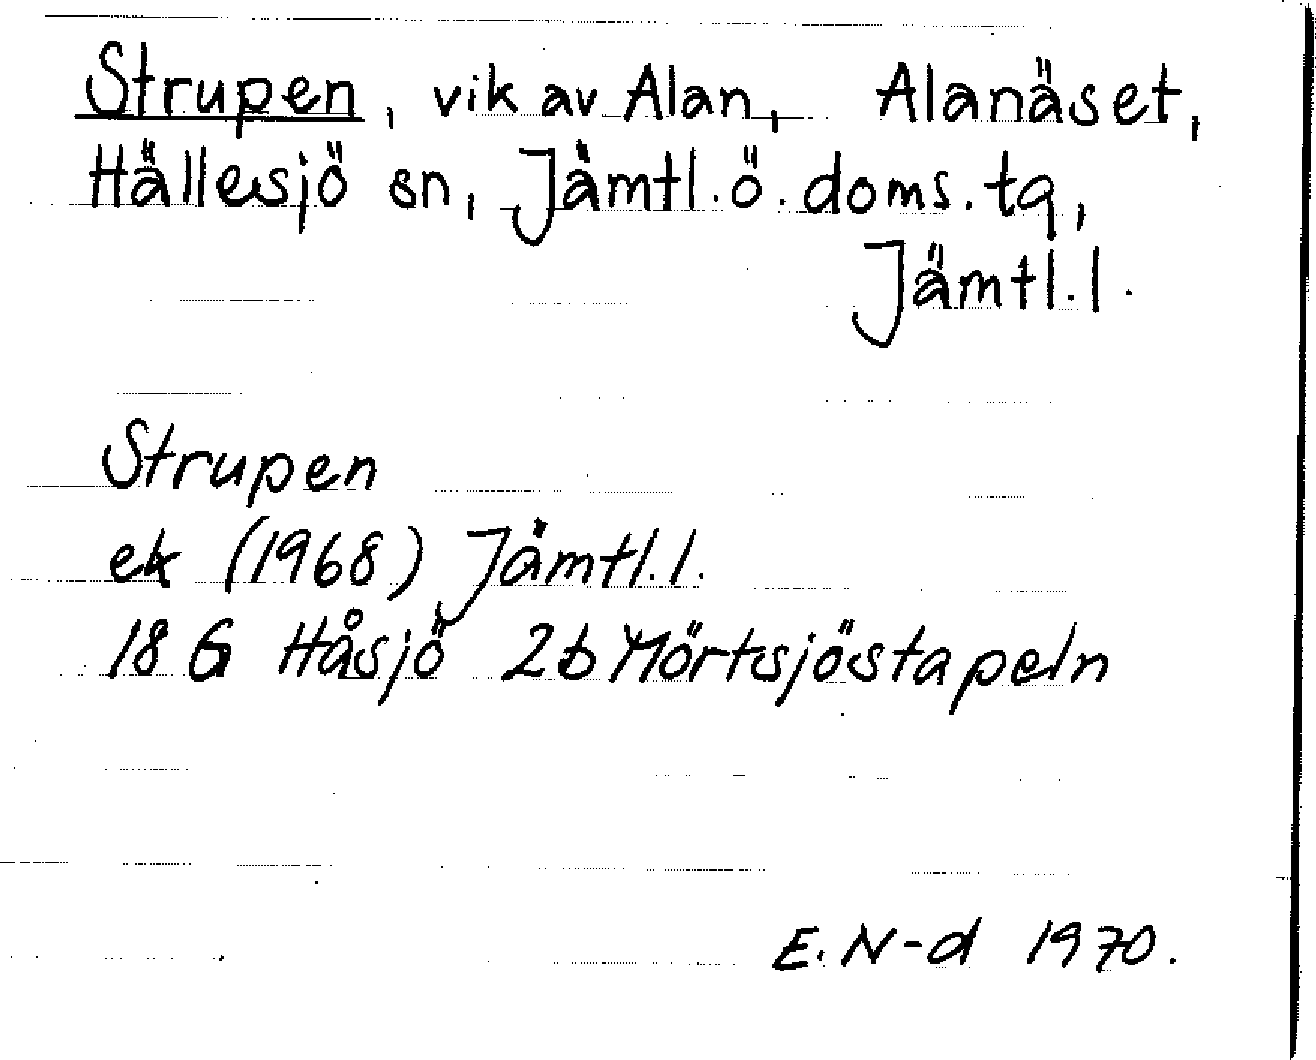 Strupen, vik av Alan, Alanäset,
Hällesjö sn, Jämtl.ö.doms.tg,
Jämtl.l.
Strupen
ek (1968) Jämtl.l.
18 G Håsjö 2b Mörtsjöstapeln
E. N-d 1970.